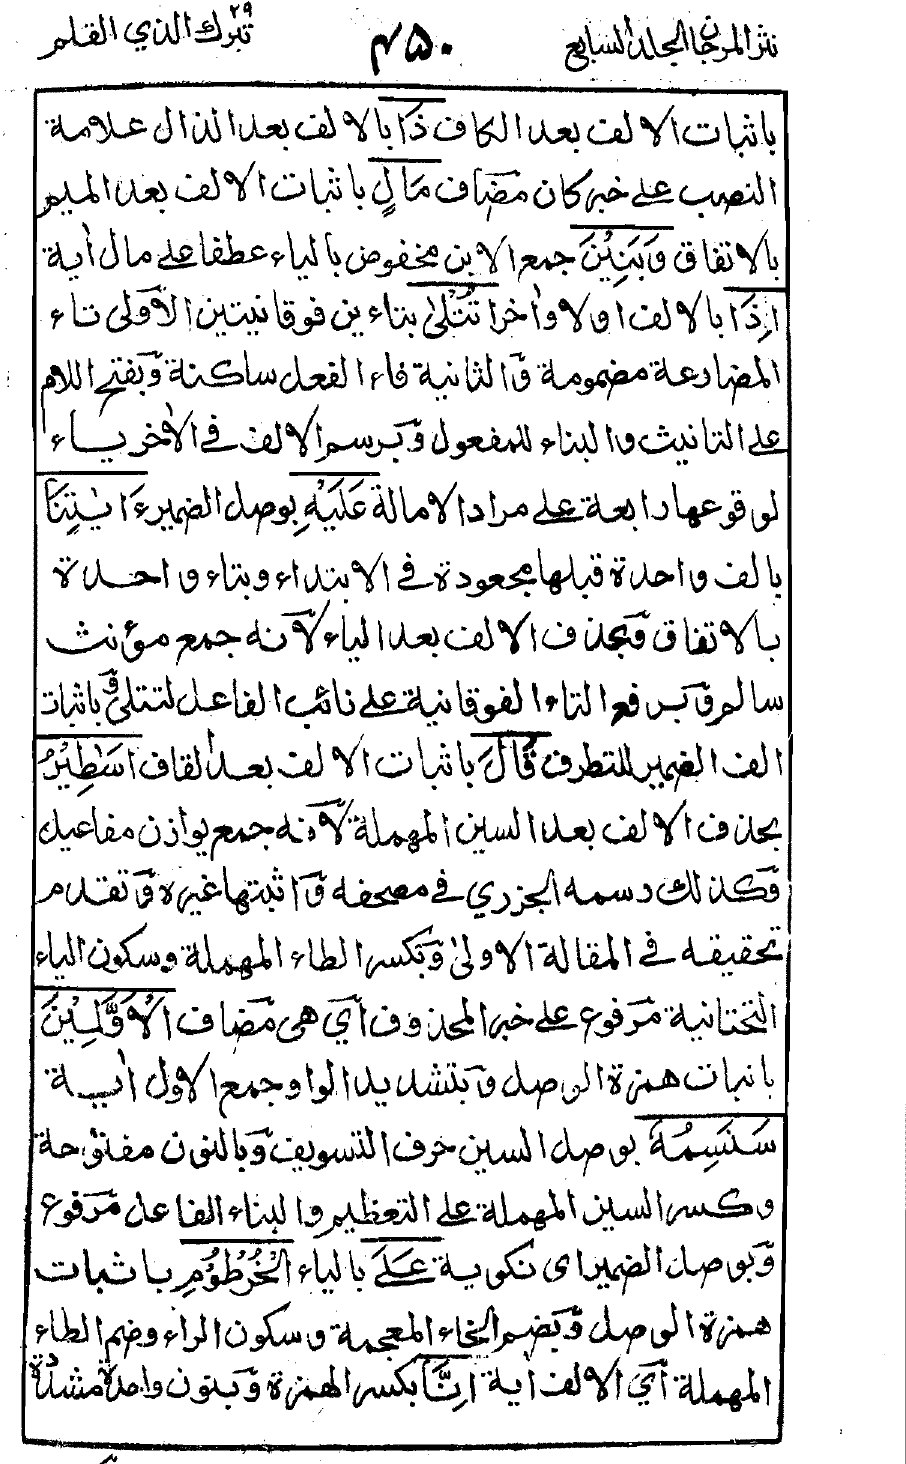 نثر المرجان المجلد السابع
٤٥٠
تبرك الذي ٢٩ القلم
باثبات الالف بعد الكاف ذَا بالالف بعد الذال علامة
النصب على خبر كان مضاف مَالٍ باثبات الالف بعد الميم
بالاتفاق وَبَنِيْنَ جمع الابن مخفوض بالياء عطفا على مال اٰية
اِذَا بالالف اولا واٰخرا تُتْلىٰ بتاءين فوقانيتين الاولى تاء
المضارعة مضمومة والثانية فاء الفعل ساكنة وبفتح اللام
على التانيث والبناء للمفعول وبرسم الالف في الاٰخر ياء
لوقوعها رابعة على مراد الامالة عَلَيْهِ بوصل الضمير ءَايٰتِنَا
بالف واحدة قبلها مجعودة في الابتداء وبتاء واحدة
بالاتفاق وبحذف الالف بعد الياء لانه جمع مؤنث
سالم وبرفع التاء الفوقانية على نائب الفاعل لتتلى وباثبات
الف الضمير للتطرف قَالَ باثبات الالف بعد القاف اَسَٰطِيْرُ
بحذف الالف بعد السين المهملة لانه جمع يوازن مفاعيل
وكذلك رسمه الجزري في مصحفه واثبتها غيره وتقدم
تحقيقه في المقالة الاولىٰ وبكسر الطاء المهملة وسكون الياء
التحتانية مرفوع على خبر المحذوف اي هي مضاف الْاَوَّلِيْنَ
باثبات همزة الوصل وبتشديد الواو جمع الاول اٰية
سَنَسِمُهٗ بوصل السين حرف التسويف وبالنون مفتوحة
وكسر السين المهملة على التعظيم والبناء الفاعل مرفوع
وبوصل الضمير اي نكويه عَلَى بالياء الْخُرْطُوْمِ باثبات
همزة الوصل وبضم الخاء المعجمة وسكون الراء وضم الطاء
المهملة اي الالف اٰية اِنَّا بكسر الهمزة وبنون واحدة مشددة